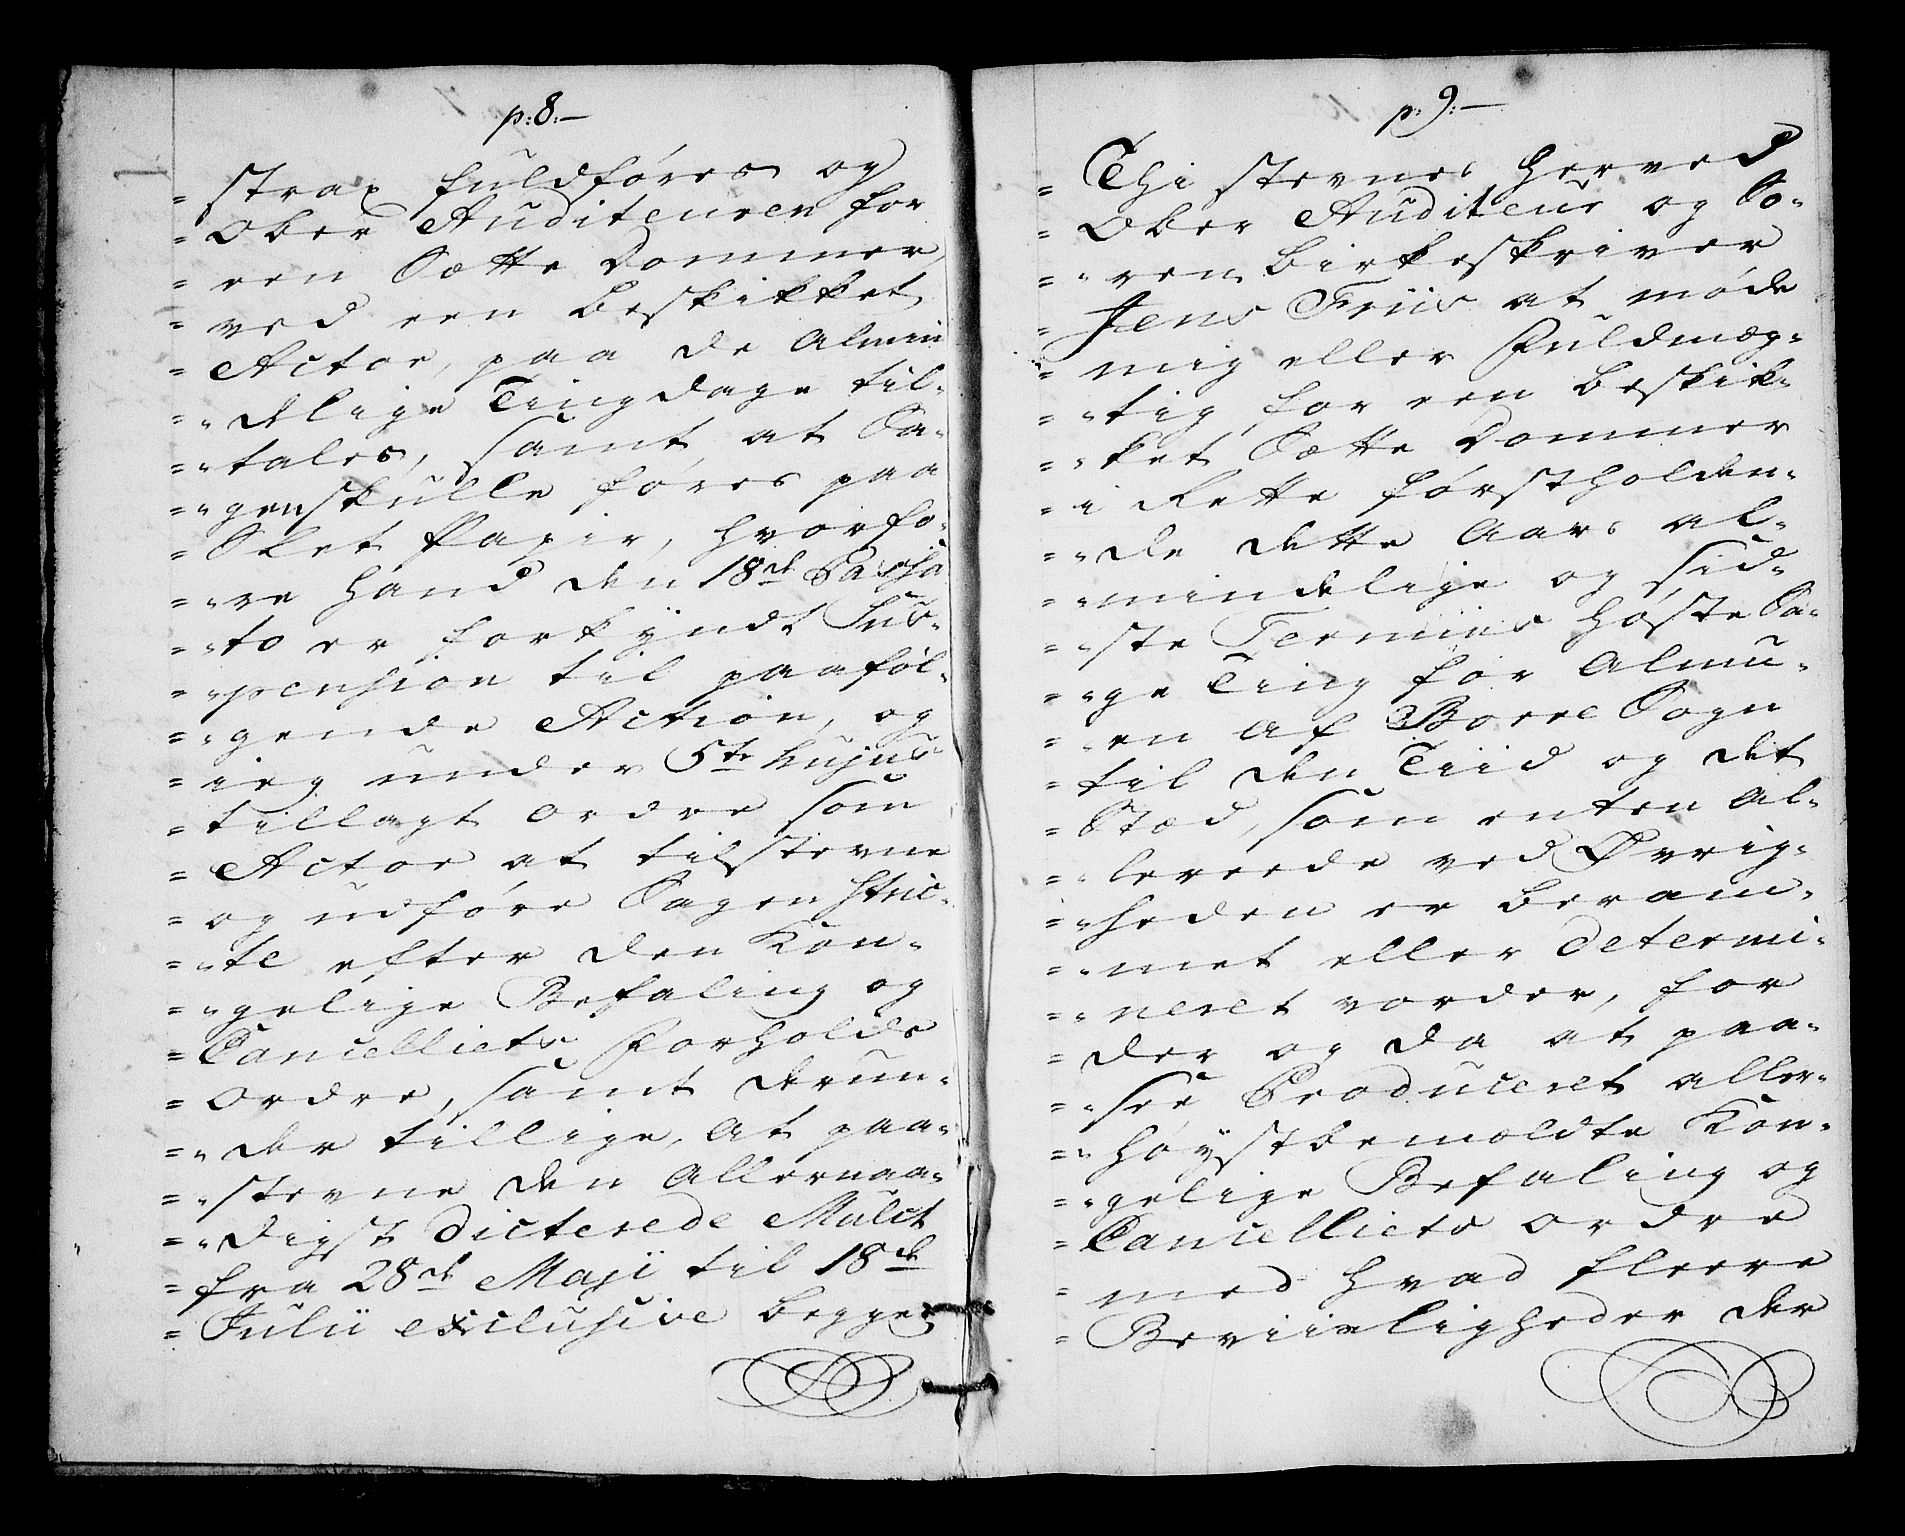 p: 8:—
= strax fuldføres og
= Ober Auditeuren for
= een Sætte Dommer,
= ved een beskikket
= Actor, paa de Almin
= „delige Tingdage til-
= „tales, samt at Sa-
= „gen skulle føres paa
= Slet Papir, hvorfo-
= „re hand den 18de Passa
= „to er forkyndt Sus-
= „pension til paaføl-
= „gende Action, og
= ieg under 5te hujus
= tillagt ordre som
= Actor at tilstevne
= og udføre Sagen stric-
= „te efter den Kon-
= „gelige Befaling og
= Cancelliets Forholds
= ordre, samt derun-
= „der tillige, at paa-
= „stevne den Allernaa-
= „digst dicterede Mulct
= fra 28de Maji til 18de
= Julii exclusive begge
p: 9:—
= Thi stevnes herved
= Ober Auditeur og So-
= „renBirkeskriver
= Jens Friis at møde
= mig eller Fuldmæg-
= „tig for een beskik-
= „ket Sætte Dommer
= i Rette førstholden-
= „de dette Aars al-
= „mindelige og sid-
= „ste Termiins Høste Sa-
= „ge Ting for Almu-
= „en af Borre Sogn
= til den Tiid og det
= Stæd, som enten al-
= „lereede ved Øvrig-
= „heden er beram-
= „met eller determi-
= „neret vorder, for
= der og da at paa-
= „see Produceret aller-
= „høystbemeldte Kon-
= „gelige Befaling og
= Cancelliets ordre
= med hvad fleere
= Beviisligheder der